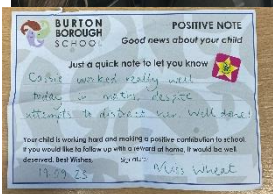 BURTON
BOROUGH
SCHOOL
POSITIVE NOTE
Good news about your child
Just a quick note to let you know
worked really well
today in maths despite
attempts to distract her. Well done!
Your child is working hard and making a positive contribution to school.
If you would like to follow up with a reward at home, it would be well
deserved. Best Wishes,
Signature
19.09.25
Miss Wheat